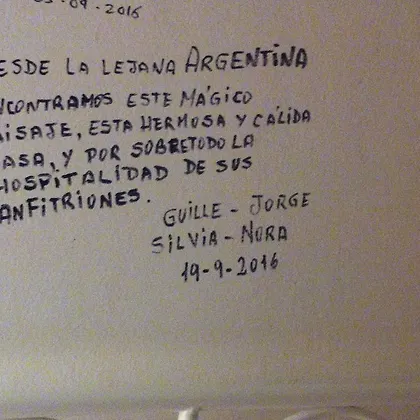 03.09.2016
ESDE LA LEJANA ARGENTINA
NCONTRAMOS ESTE MÁGICO
AISAJE, ESTA HERMOSA Y CÁLIDA
ASA, Y POR SOBRETODO LA
HOSPITALIDAD DE SUS
ANFITRIONES.
GUILLE - JORGE
SILVIA - NORA
19-9-2016